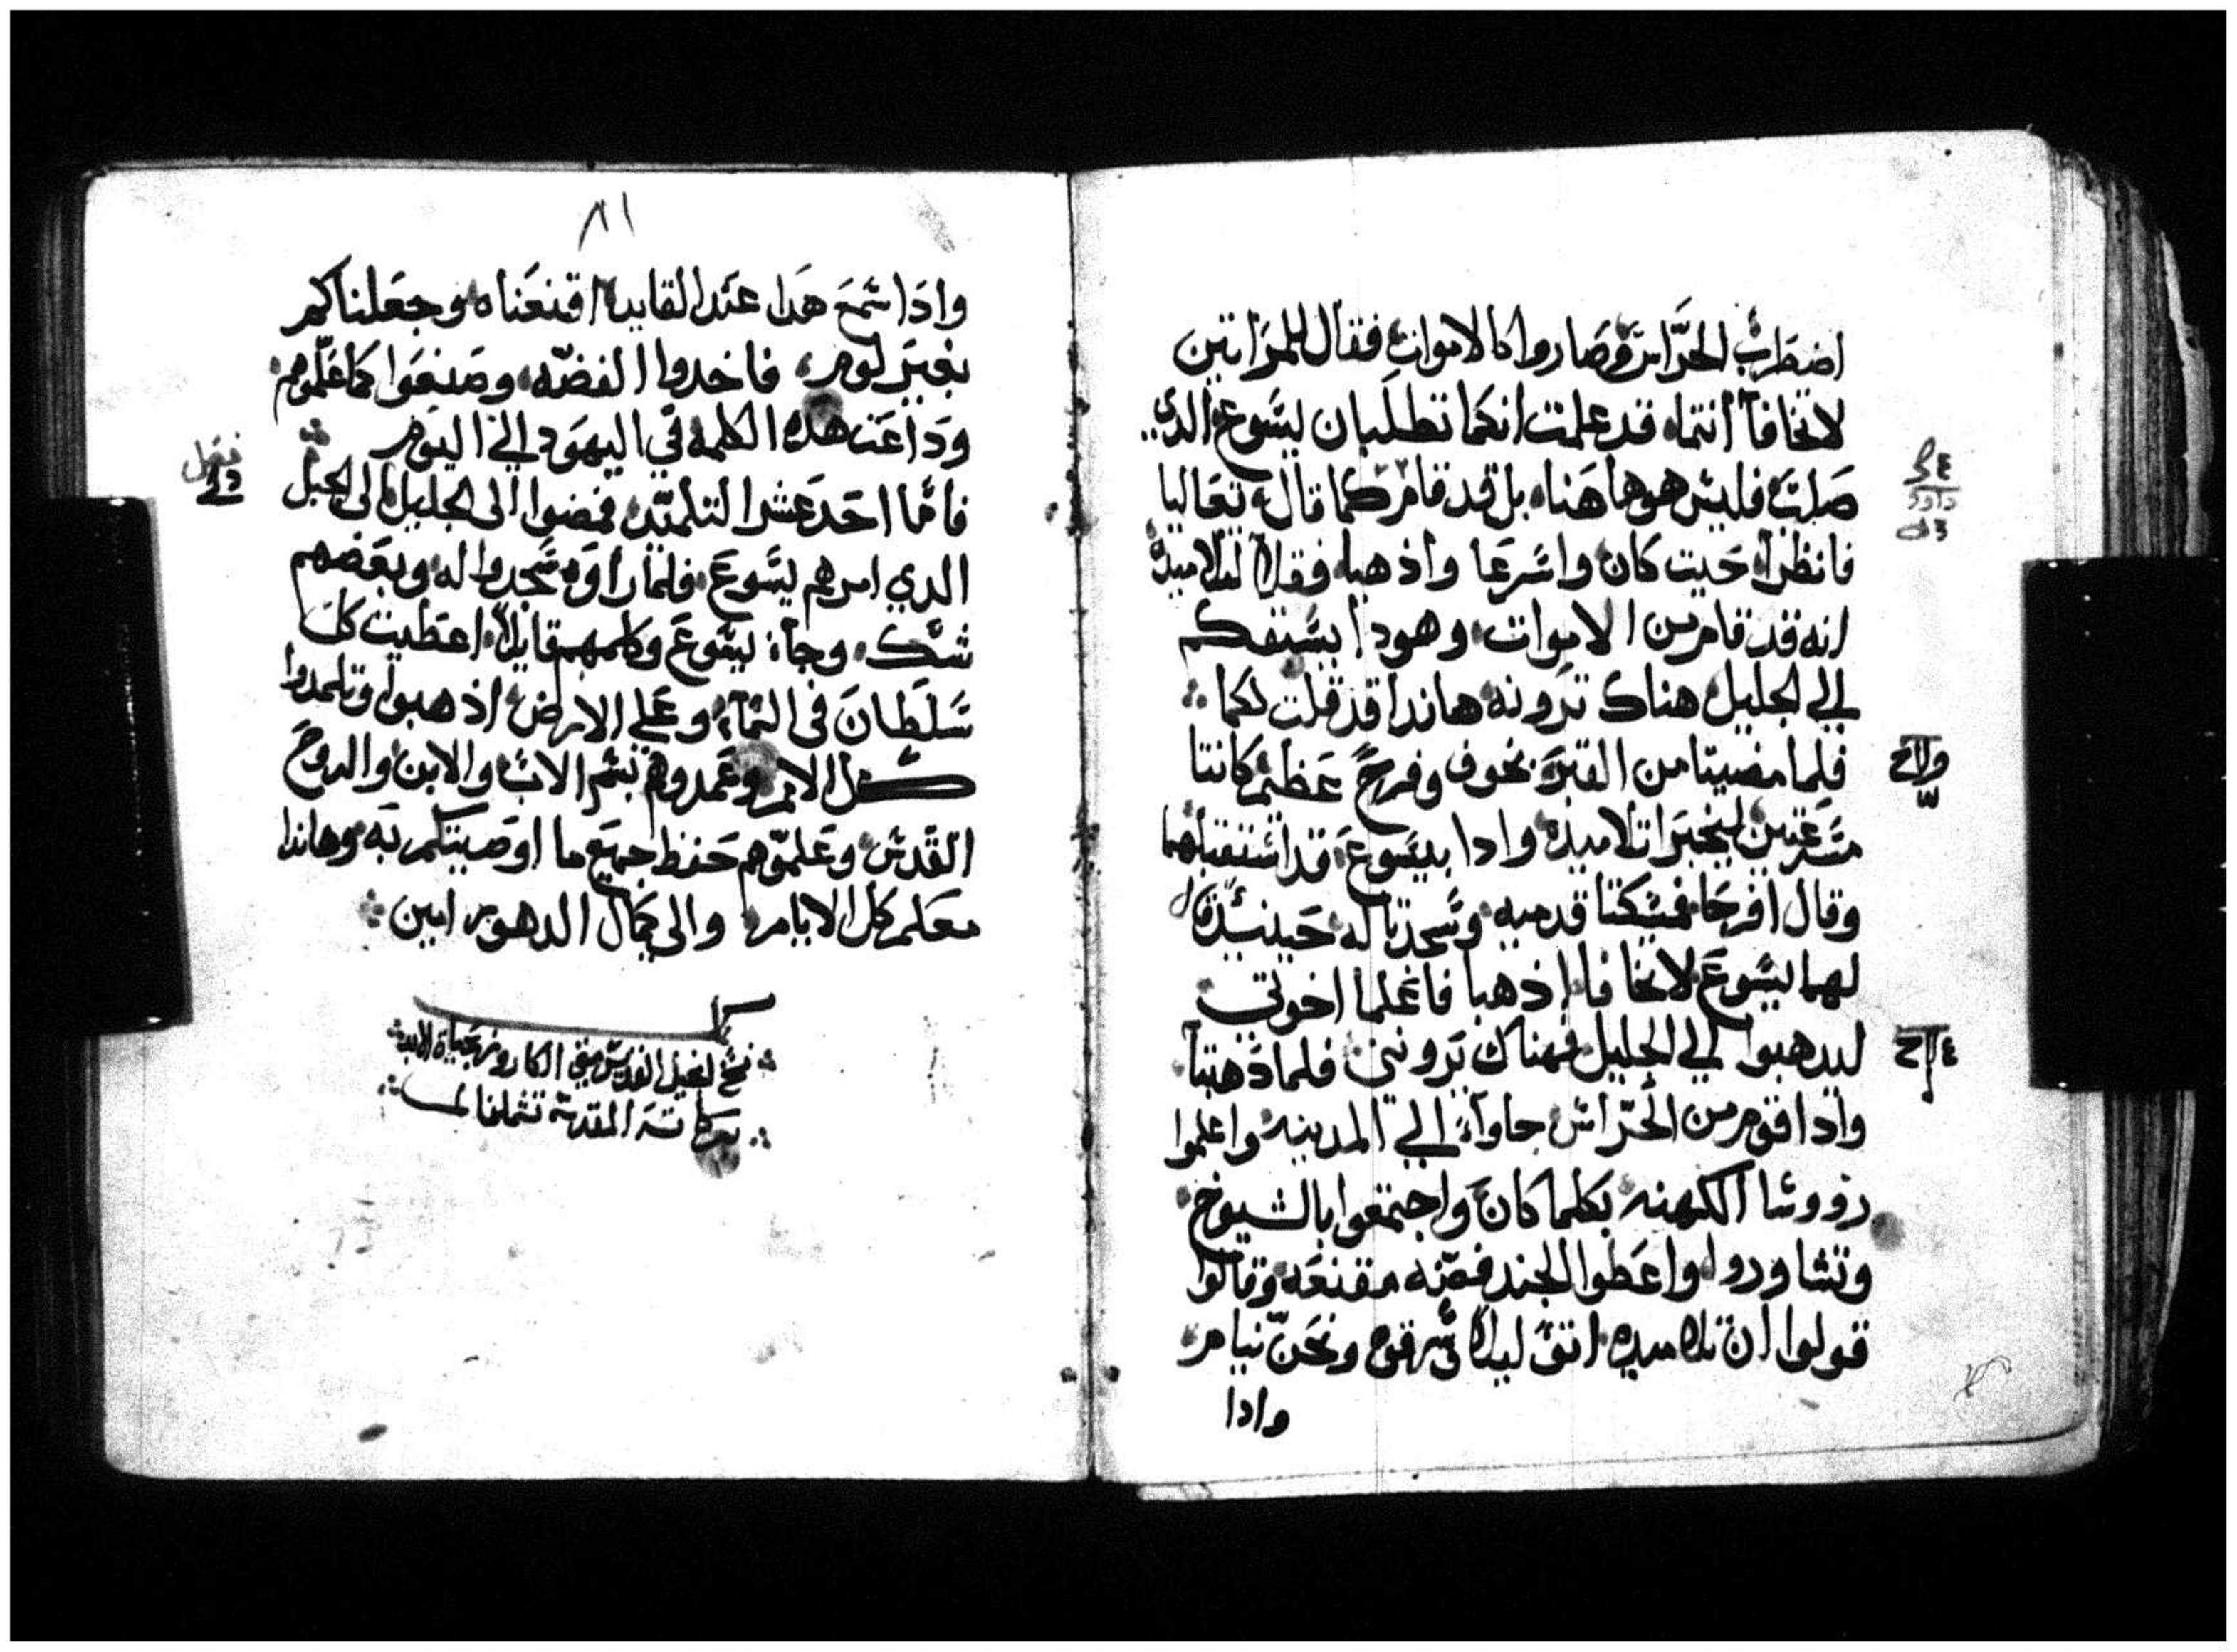 اضطرب الحراس وصاروا كالاموات فقال للمراتين
لا تخافا انتما قد علمت انكما تطلبان ليسوع الدي
صلب فليس هو هاهنا بل قد قام كما قال تعاليا
فانظرا حيت كان واسرعا واذهبا وقولا لتلاميده
انه قد قام من الاموات وهودا يسبقكم
الي الجليل هناك ترونه هاندا قد قلت لكما
فلما مضيتا من القبر بخوف وفرح عظيم كانتا
مسرعتين ليخبرا تلاميذه وادا بيسوع قد استقبلهما
وقال افرحا فمسكتا قدميه وسجدتا له حينئذ قال
لهما يسوع لا تخافا اذهبا فاعلما اخوتي
ليدهبوا الي الجليل فهناك يروني فلما دهبتا
وادا قوم من الحراس جاوا الي المدينه واعلموا
رووسا الكهنه بكلما كان واجتمعوا بالشيوخ
وتشاوروا واعطوا الجند فضه مقنعه وقالوا
قولوا ان تلاميده اتو ليلا وسرقوه ونحن نيام
وادا
٨١
وادا سمع هدا عند القايد اقنعناه وجعلناكم
بغير لوم فاخدوا الفضه وصنعوا كما علموهم
وداعت هده الكلمه في اليهود الي اليوم
فاما احد عشر التلميد فمضوا الى الجليل الى الجبل
الدي امرهم يسوع فلما راوه سجدوا له وبعضهم
شك وجا يسوع وكلمهم قايلا اعطيت كل
سلطان في السماء وعلي الارض اذهبوا وتلمدوا
كل الامم وعمدوهم بسم الاب والابن والروح
القدس وعلموهم حفظ جميع ما اوصيتكم به وهاندا
معكم كل الايام والى كمال الدهور امين
كمل
نسخ انجيل القديس متي الكاروز بحياة الابد
بركاته المقدسه تشملنا